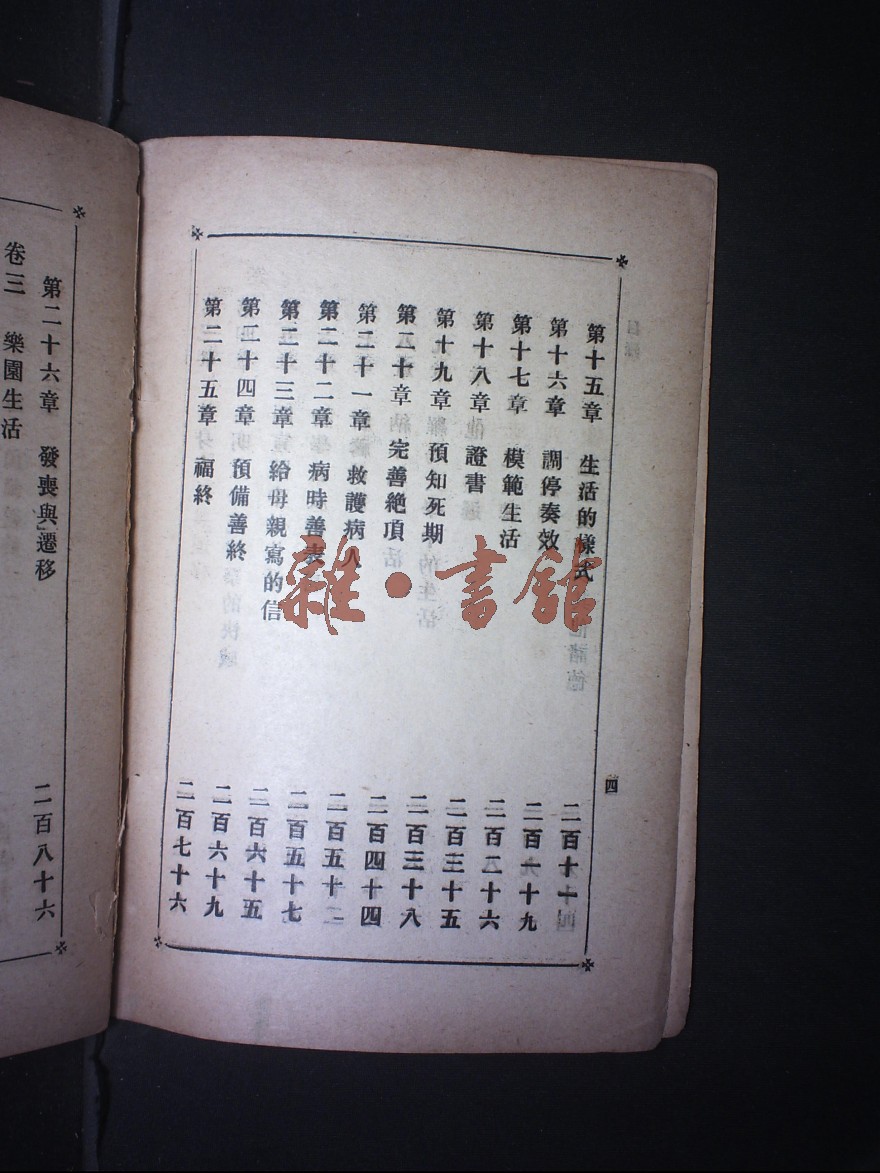 目錄
第十五章 生活的樣式 二百十一
第十六章 調停奏效 二百一十九
第十七章 模範生活 二百二十六
第十八章 證書 二百三十五
第十九章 預知死期 二百三十八
第二十章 完善絕頂 二百四十四
第二十一章 救護病人 二百五十二
第二十二章 病時善表 二百五十七
第二十三章 給母親寫的信 二百六十五
第二十四章 預備善終 二百六十九
第二十五章 福終 二百七十六
四
第二十六章 發喪與遷移 二百八十六
卷三 樂園生活
雜·書館